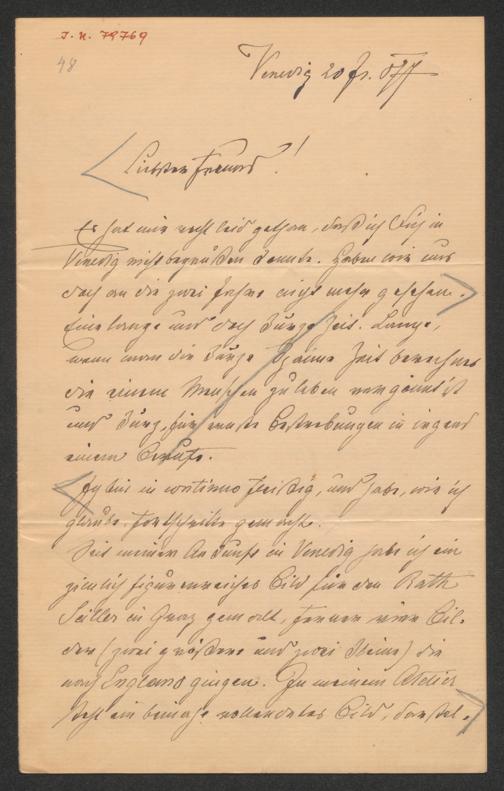 J. N. 79769
48
Venedig 20 Jr. 877
Liebster Freund!
Es hat mir recht leid gethan, daß ich Dich in
Venedig nicht begrüßen konnte. Haben wir uns
doch an die zwei Jahre nicht mehr gesehen.
Eine lange und doch kurze Zeit. Lange,
wenn man die kurze Spanne Zeit berechnet
die einem Menschen zu leben vergönnt ist
und kurz, für ernste Bestrebungen in irgend
einem Berufe.
Ich bin in continuo fleißig, und habe, wie ich
glaube Fortschritte gemacht.
Seit meiner Ankunft in Venedig habe ich ein
ziemlich figurenreiches Bild für den Rath
Seiller in Graz gemalt, ferner vier Bil-
der (zwei größere und zwei kleine) die
nach England gingen. In meinem Atelier
steht ein beinahe vollendetes Bild, darstel-